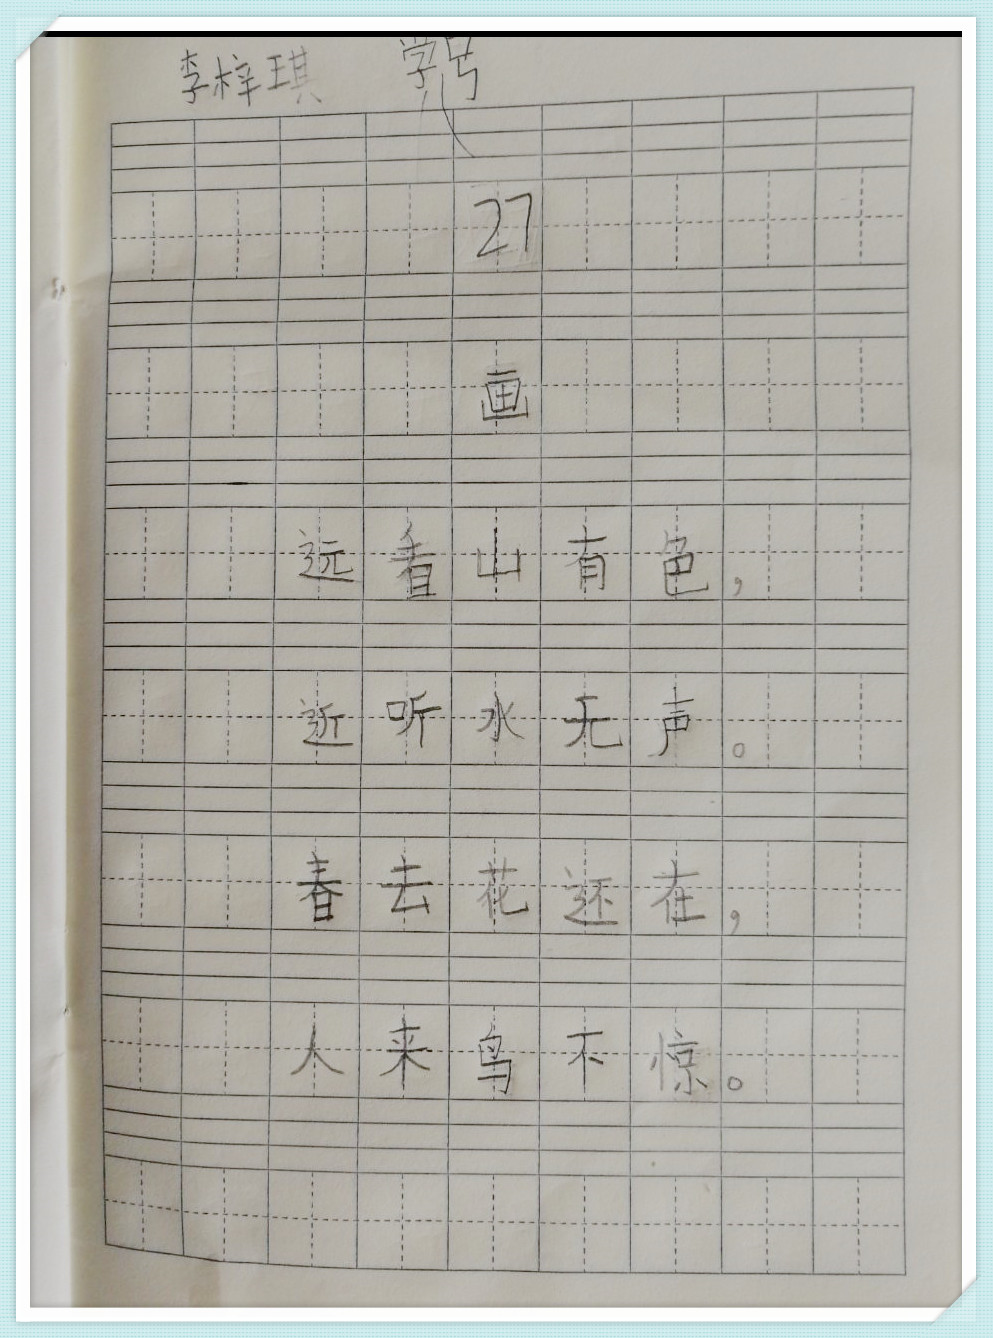 李梓琪 学号
27
画
远看山有色，
近听水无声。
春去花还在，
人来鸟不惊。